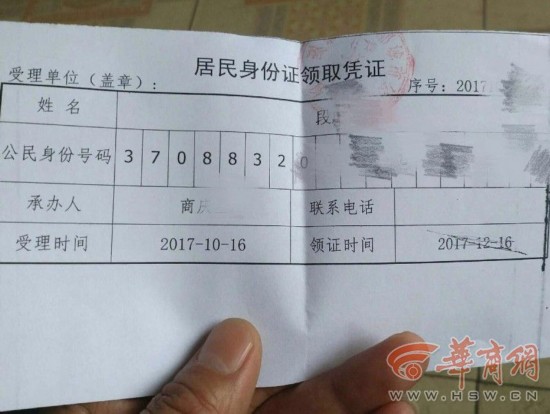 居民身份证领取凭证
受理单位（盖章）： 序号：2017
姓名 段
公民身份号码 37088320
承办人 商 联系电话
受理时间 2017-10-16 领证时间 2017-12-16
华商网
WWW.HSW.CN